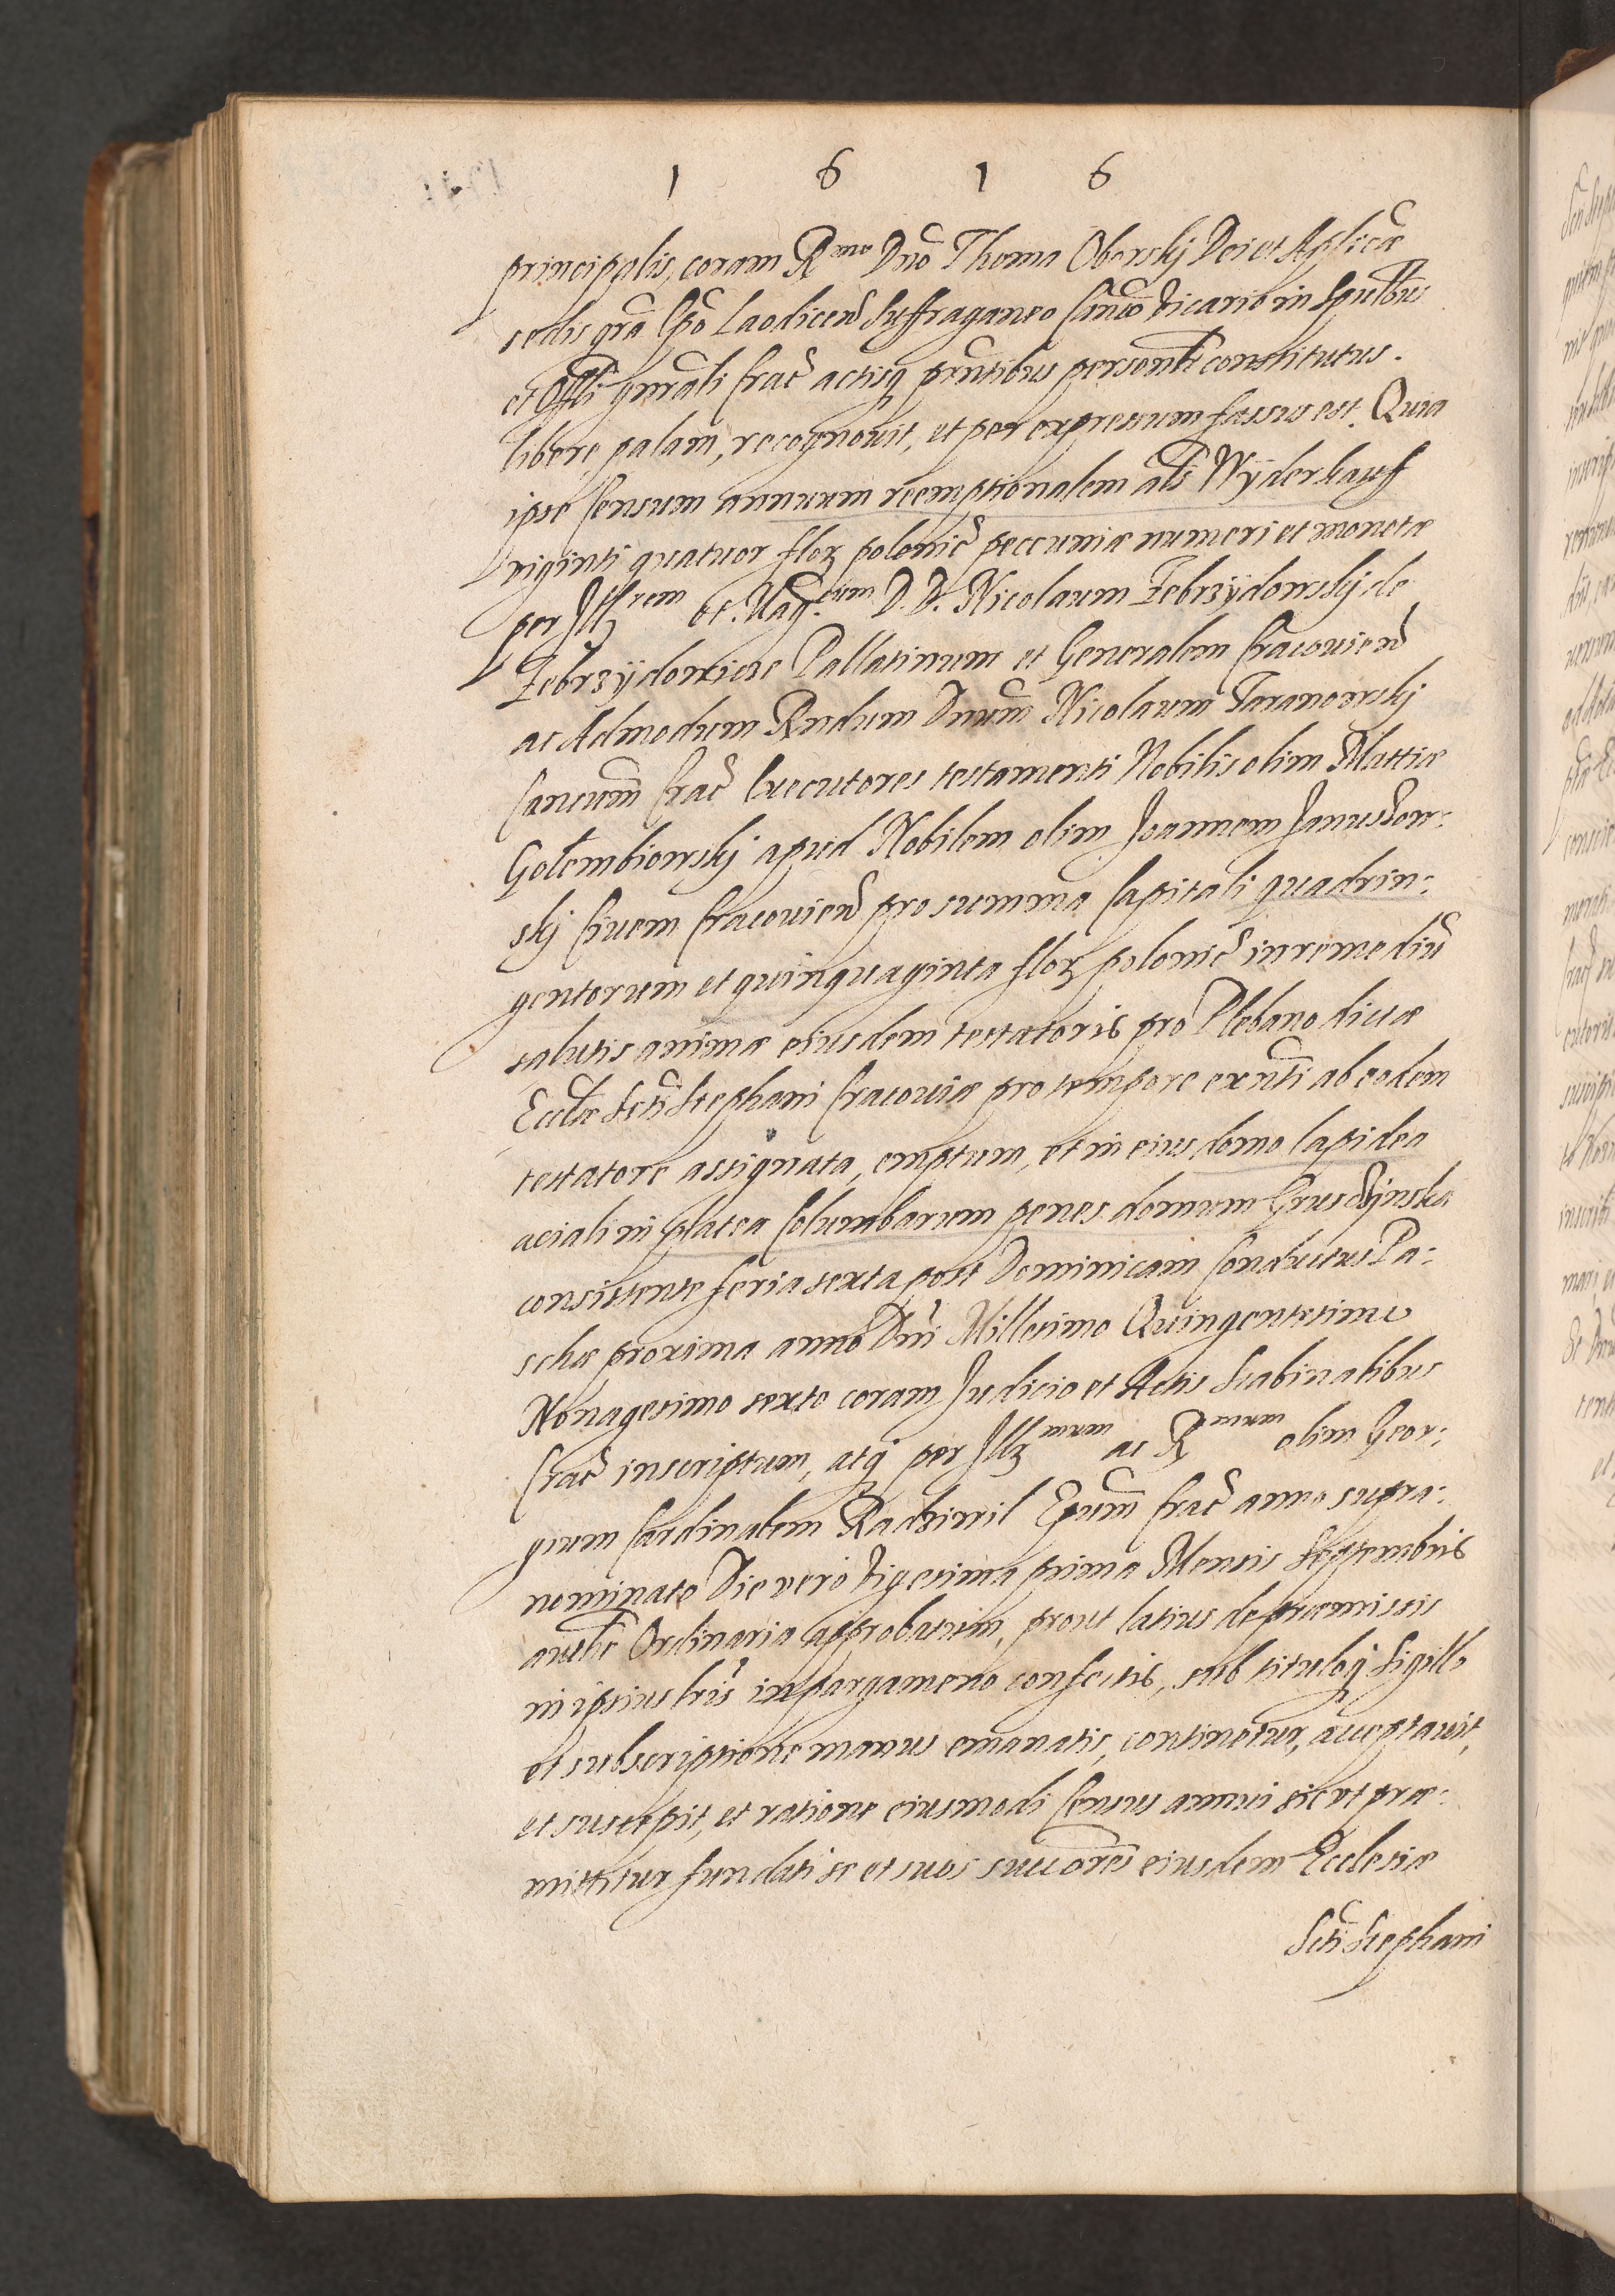 1 6 1 6
principalis, coram Rmo Dno Thoma Oborskj Dei et Aplicae
sedis gra Epo Laodicen Suffraganeo Canco Vicario in Spualibus
et Offli gnrali Crac actisq pntibus personalr constitutus.
libere palam, recognouit, et per expressum fassus est. Quia
ipse Censum annuum reemptionalem als Wÿderkauf
viginti quatuor flor polonic pecuniae numeri et monetae
per Illrem et Mag.cum D. D. Nicolaum Zebrzÿdowskj de
Zebrzÿdowicze Pallatinum et Generalem Cracouien
ac Admodum Rndum Dnum Nicolaum Taranowskj
Cancum Crac Executores testamenti Nobilis olim Mattiae
Gołembiowskj apud Nobilem olim Joannem Januszow:
skj Ciuem Cracouien pro summa Capitali quadrin:
gentorum et quinquaginta flor polonic in remediu
salutis animae eiusdem testatoris pro Plebano dictae
Ecclae Scti Stephani Cracouiae pro tempore exnti ab eodem
testatore assignata, emptum, et in eius domo lapidea
aciali in platea Columbarum penes domum Gruszczÿnska
consistente feria sexta post Dominicam Conductus Pa:
schae proxima anno Dni Millesimo Quingentesimo
Nonagesimo sexto coram Judicio et Actis Scabinalibus
Crac inscriptum, atq per Illmum ac Rmum olim Geor:
gium Cardinalem Radziwil Epum Crac anno supra:
nominato Die vero Vigesima prima Mensis Septembris
authe Ordinaria approbatum, prout latius de praemissis
in ipsius lris in pargameno confectis, sub tituloq Sigillo
et subscriptione manus emanatis, continetur, acceptauit,
et suscepit, et ratione eiusmodi Census annui sic ut prae:
mittitur fundati se et suos succores eiusdem Ecclesiae
Scti Stephani